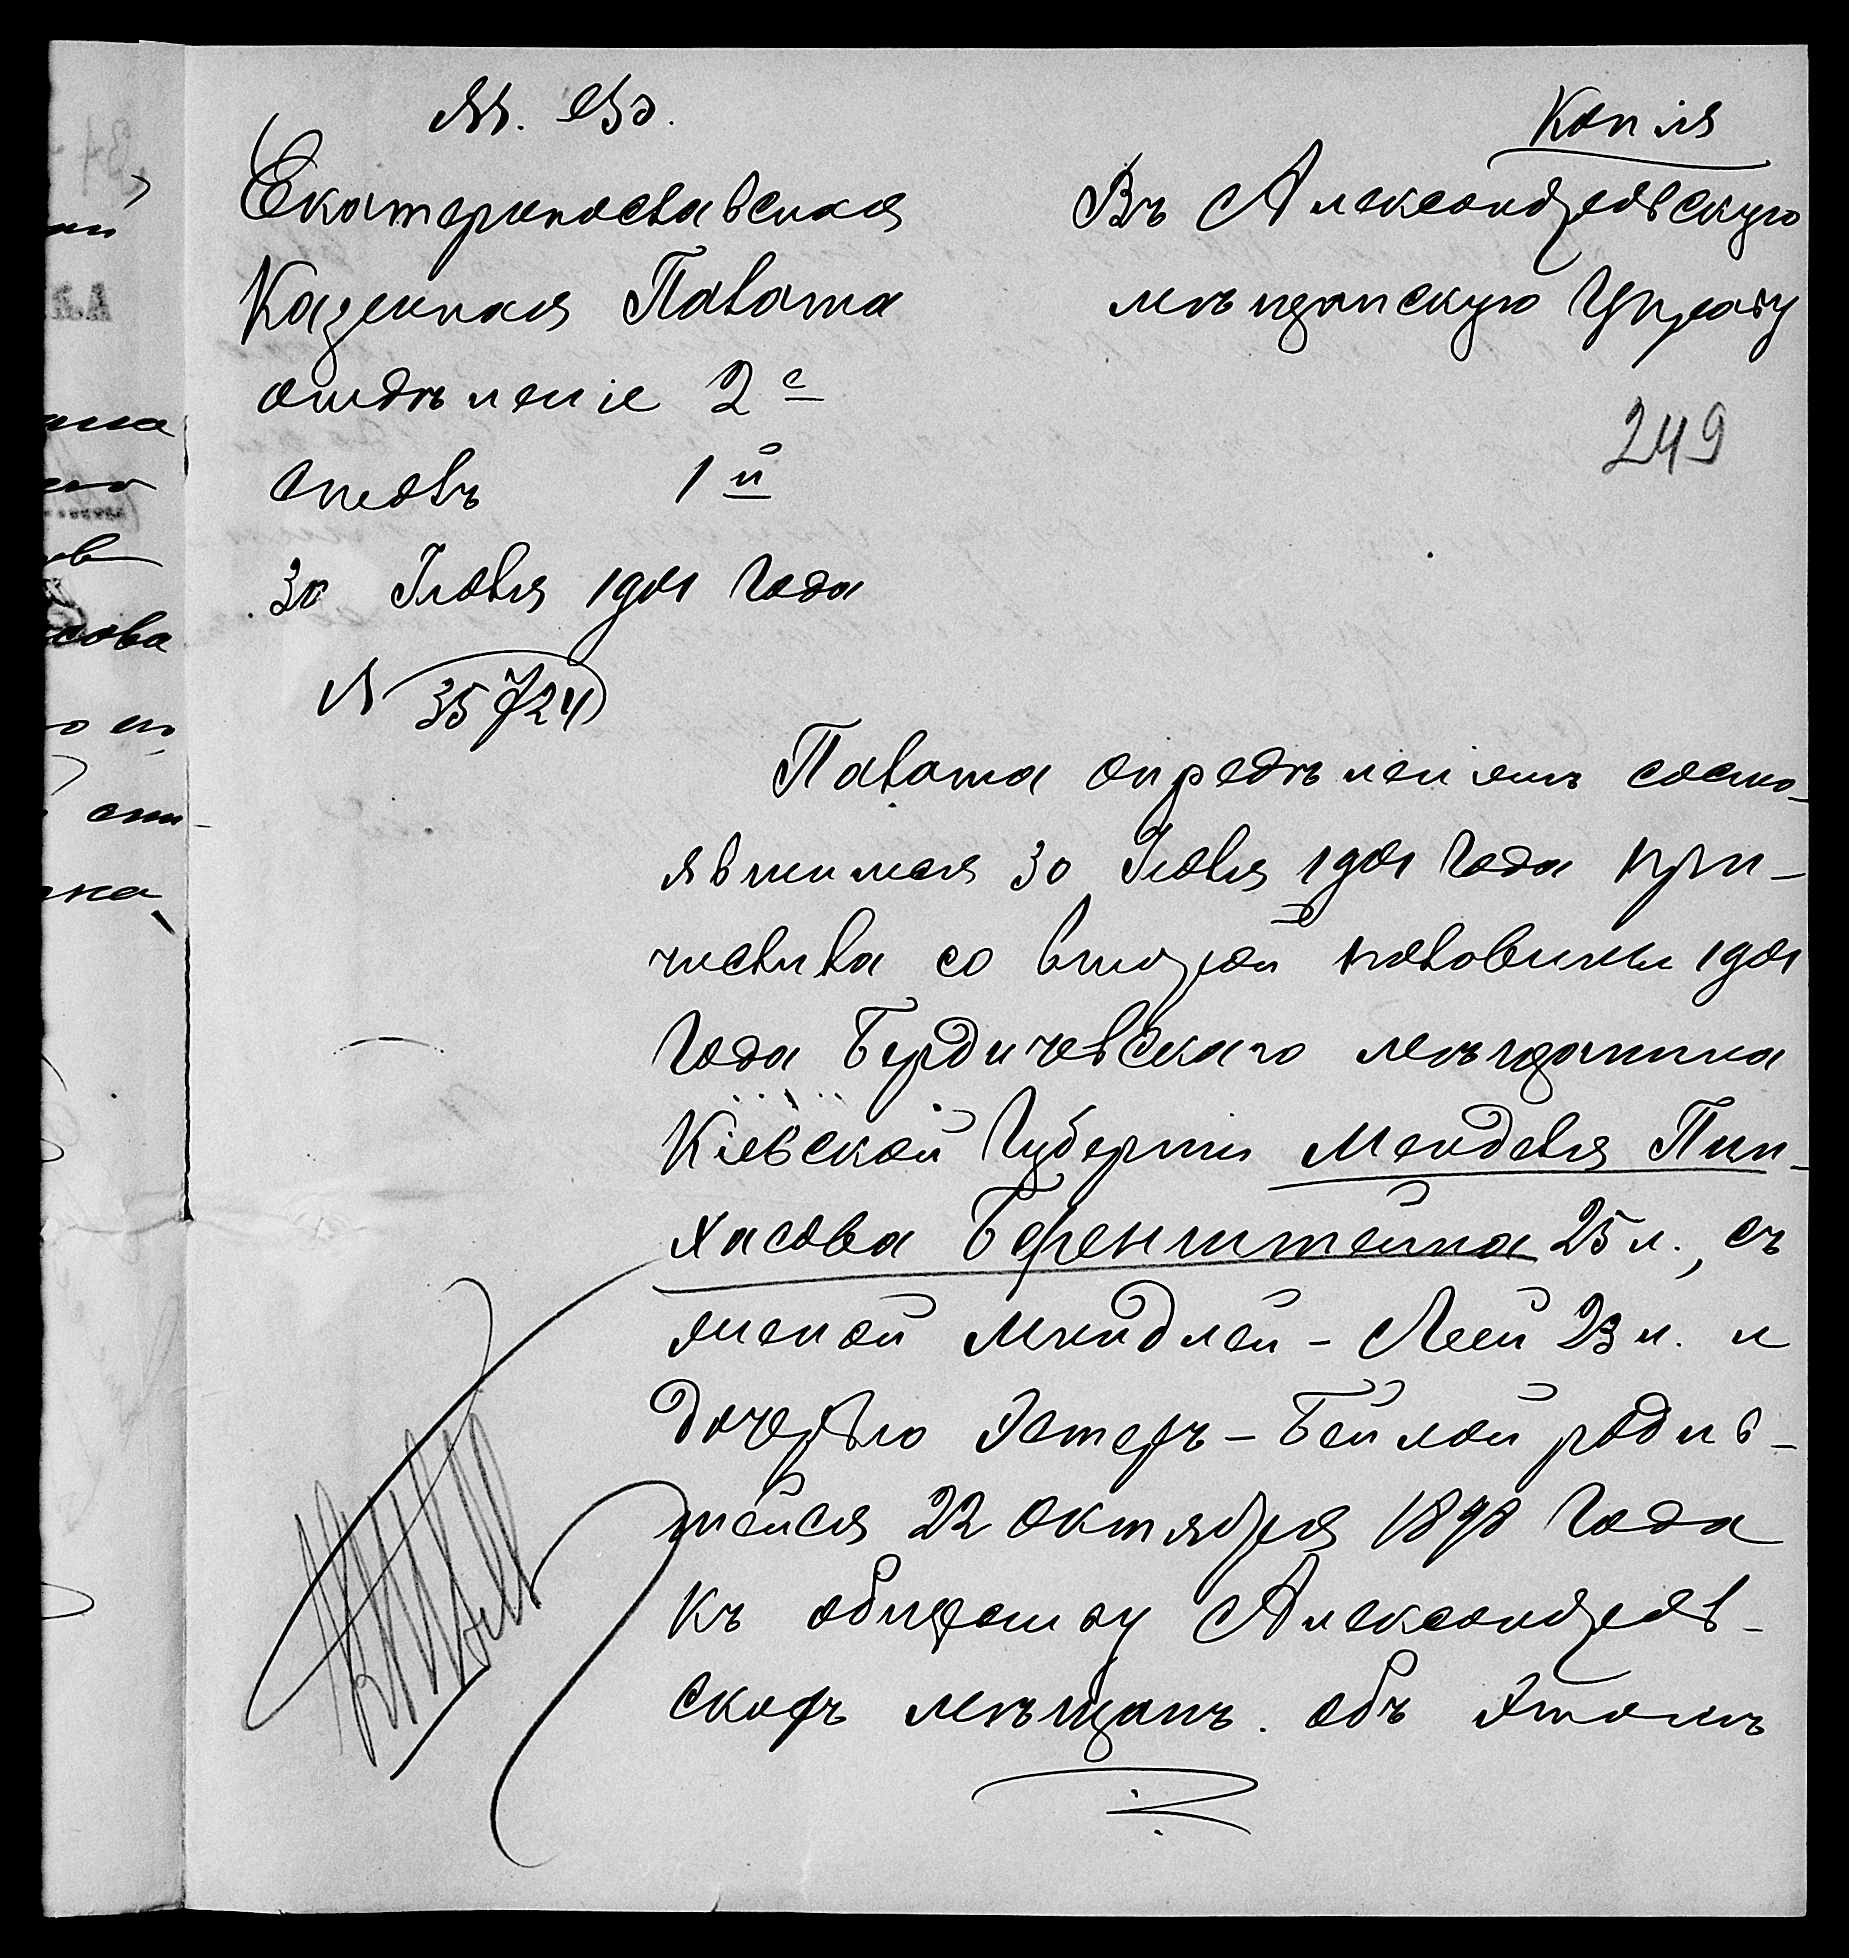 М. Ф.
Копія
Екатеринославская
Казенная Палата
отдѣленіе 2е
столъ 1й
30 Іюля 1901 года
№ 35724
Въ Александровскую
мѣщанскую Управу
249
Палата опредѣленіемъ состо-
явшимся 30 Іюля 1901 года при-
числила со второй половины 1901
года Бердичевскаго мѣщанина
Кіевской Губерніи Менделя Пин-
хасова Беренштейна 25 л., съ
женой Миндлей-Леей 23 л. и
дочерью Эстеръ-Бейлой родив-
шейся 22 Октября 1898 года
къ обществу Александров-
скихъ мѣщанъ. Объ этомъ